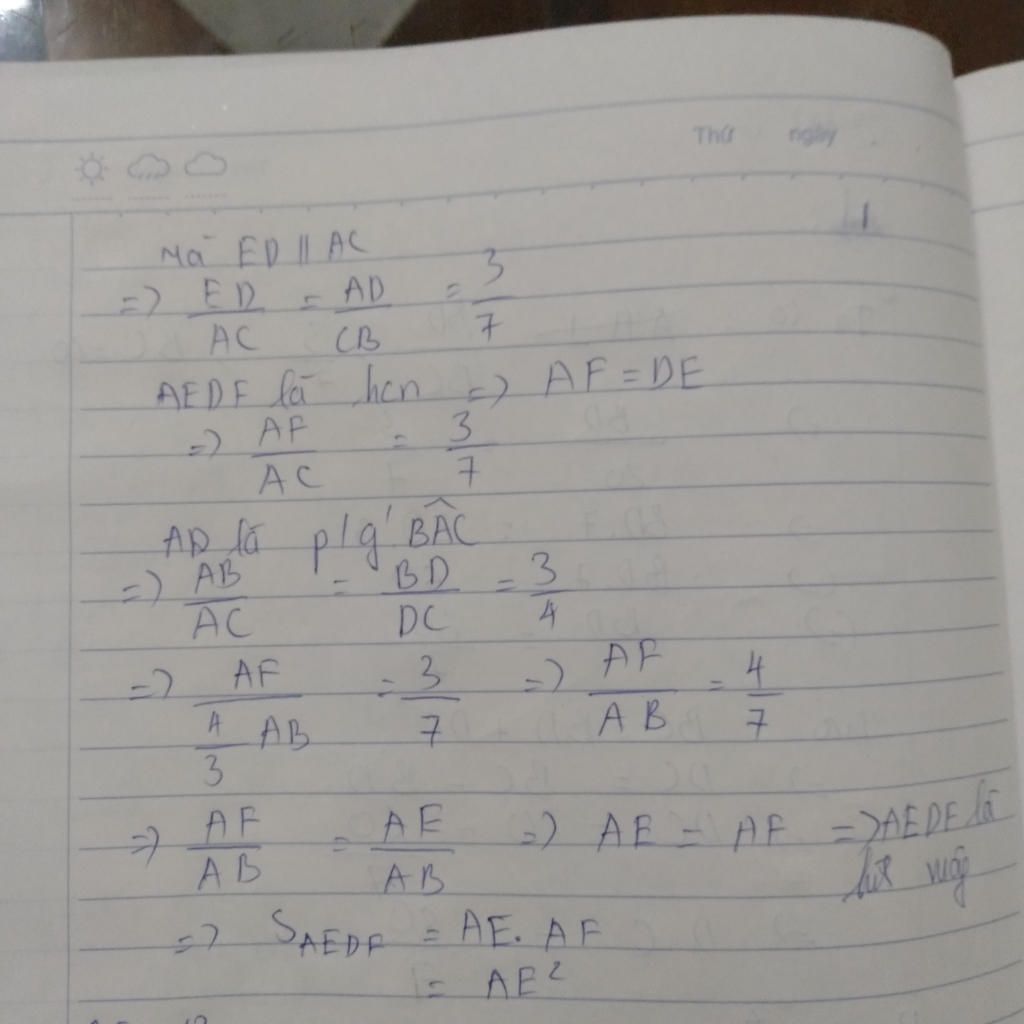 Thứ ngày
1
Mà ED || AC
=> ED/AC = AD/CB = 3/7
AEDF là hcn => AF = DE
=> AF/AC = 3/7
AD là p/g' BÂC
=> AB/AC = BD/DC = 3/4
=> AF/(4/3 AB) = 3/7 => AF/AB = 4/7
=> AF/AB = AE/AB => AE = AF => AEDF là
S_AEDF = AE. AF
= AE²